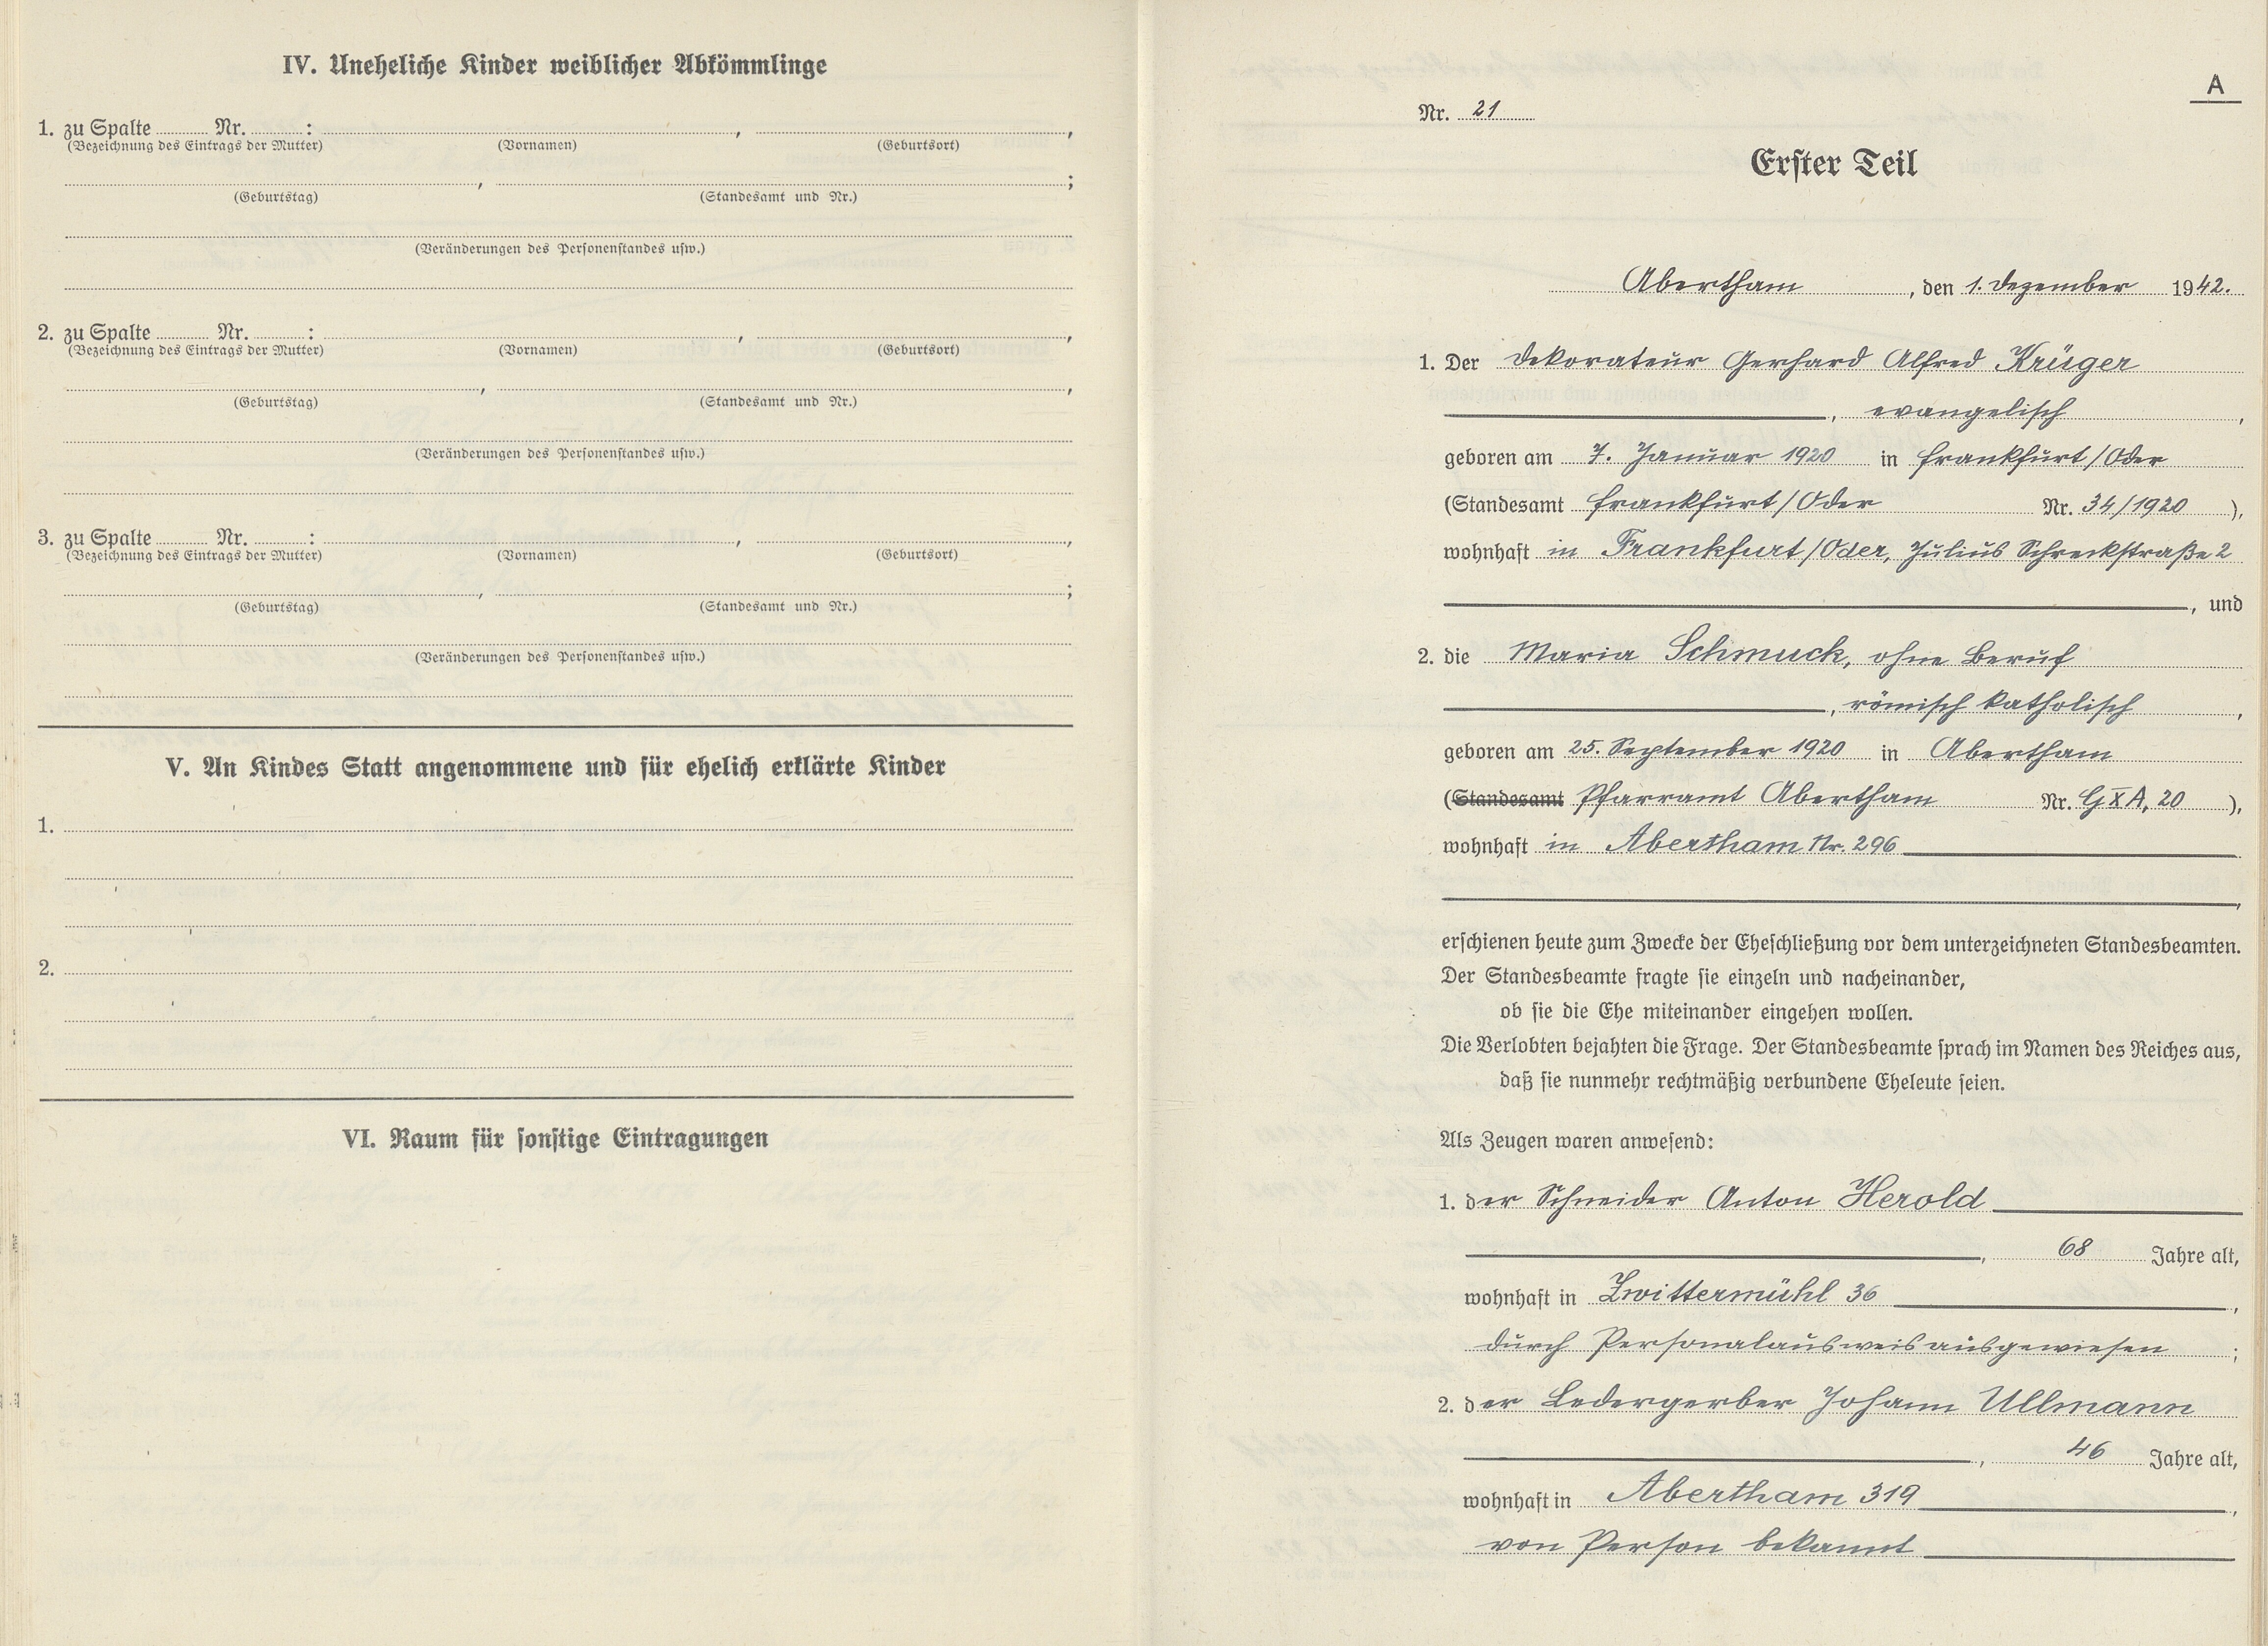 IV. Uneheliche Kinder weiblicher Abkömmlinge
1. zu Spalte ........ Nr. ........ : ........, ........,
(Bezeichnung des Eintrags der Mutter) (Vornamen) (Geburtsort)
........, ........;
(Geburtstag) (Standesamt und Nr.)
(Veränderungen des Personenstandes usw.)
2. zu Spalte ........ Nr. ........ : ........, ........,
(Bezeichnung des Eintrags der Mutter) (Vornamen) (Geburtsort)
........, ........,
(Geburtstag) (Standesamt und Nr.)
(Veränderungen des Personenstandes usw.)
3. zu Spalte ........ Nr. ........ : ........, ........,
(Bezeichnung des Eintrags der Mutter) (Vornamen) (Geburtsort)
........, ........;
(Geburtstag) (Standesamt und Nr.)
(Veränderungen des Personenstandes usw.)
V. An Kindes Statt angenommene und für ehelich erklärte Kinder
1.
2.
VI. Raum für sonstige Eintragungen
A
Nr. 21
Erster Teil
Abertham, den 1. Dezember 1942.
1. Der Dekorateur Gerhard Alfred Krüger
, evangelisch,
geboren am 7. Januar 1920 in Frankfurt/Oder
(Standesamt Frankfurt/Oder Nr. 34/1920),
wohnhaft in Frankfurt/Oder, Julius Schreckstraße 2
, und
2. die Maria Schmuck, ohne Beruf
, römisch katholisch,
geboren am 25. September 1920 in Abertham
(Standesamt Pfarramt Abertham Nr. G X A, 20),
wohnhaft in Abertham Nr. 296
,
erschienen heute zum Zwecke der Eheschließung vor dem unterzeichneten Standesbeamten.
Der Standesbeamte fragte sie einzeln und nacheinander,
ob sie die Ehe miteinander eingehen wollen.
Die Verlobten bejahten die Frage. Der Standesbeamte sprach im Namen des Reiches aus,
daß sie nunmehr rechtmäßig verbundene Eheleute seien.
Als Zeugen waren anwesend:
1. der Schneider Anton Herold
, 68 Jahre alt,
wohnhaft in Zwittermühl 36,
durch Personalausweis ausgewiesen;
2. der Ledergerber Johann Ullmann
, 46 Jahre alt,
wohnhaft in Abertham 319,
von Person bekannt